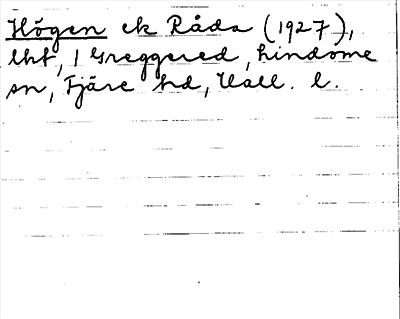 Högen ek Råda (1927),
lht, 1 Greggered, Lindome
sn, Fjäre hd, Hall. l.